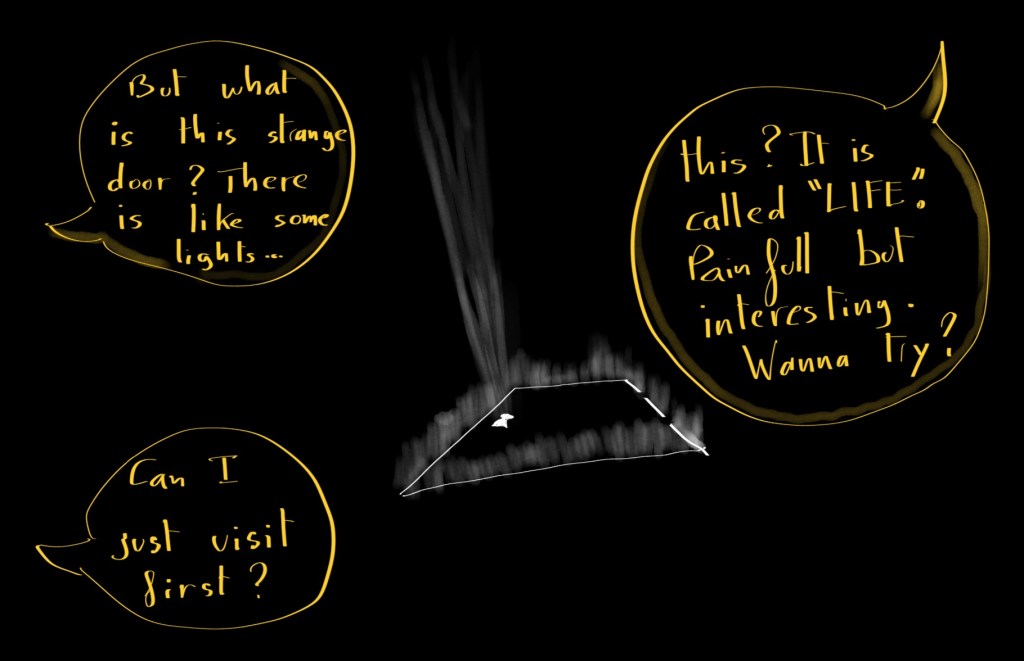 But what
is this strange
door? There
is like some
lights...
this? It is
called "LIFE".
Painfull but
interesting.
Wanna try?
Can I
just visit
first?